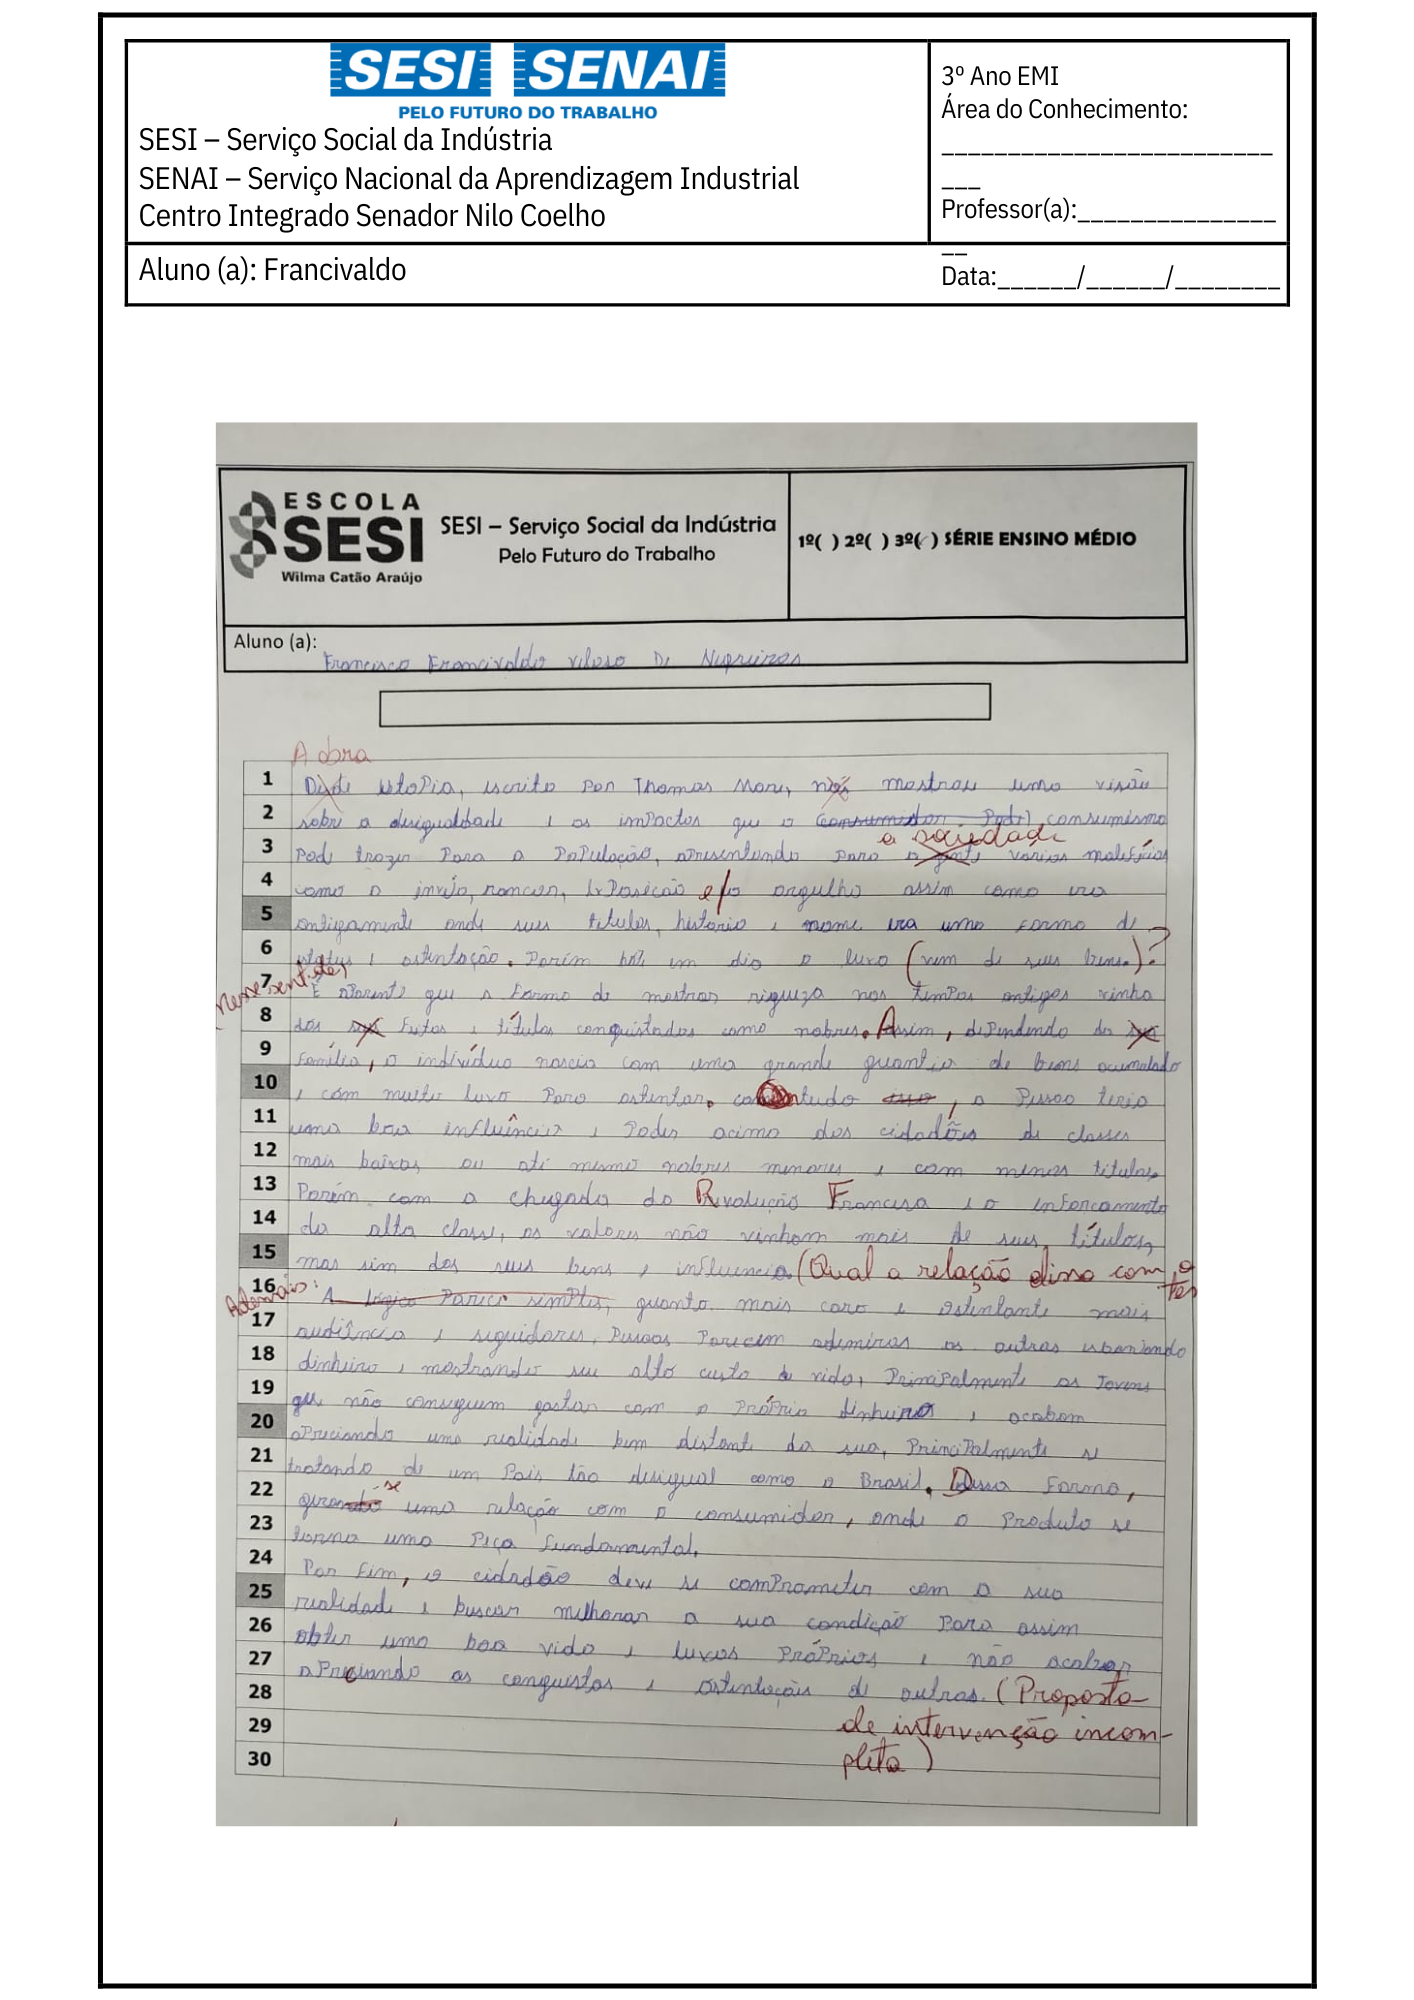 SESI SENAI
PELO FUTURO DO TRABALHO
SESI – Serviço Social da Indústria
SENAI – Serviço Nacional da Aprendizagem Industrial
Centro Integrado Senador Nilo Coelho
3º Ano EMI
Área do Conhecimento:
_________________________
___
Professor(a):_______________
__
Aluno (a): Francivaldo
Data:______/______/________
ESCOLA
SESI
Wilma Catão Araújo
SESI – Serviço Social da Indústria
Pelo Futuro do Trabalho
1º( ) 2º( ) 3º( ) SÉRIE ENSINO MÉDIO
Aluno (a):
Francisco Francivaldo Veloso De
A obra
1 Utopia, escrito por Thomas More, nos mostrou uma visão
2 sobre a desigualdade e os impactos que o consumidor Pode consumismo
a sociedade
3 pode trazer para a população, apresentando para a gente varios maleficios
4 como a inveja, rancor, e/o orgulho assim como era
5 antigamente onde seus titulos, historia e nome era uma forma de
6 status e ostentação. Porém hoje em dia o luxo (vem de seus bens.)?
Nesse sentido,
7 É aparente que a forma de mostrar riqueza nos tempos antigos vinha
8 dos feitos e títulos conquistados como nobres. Assim, dependendo da sua
9 família, o indivíduo nascia com uma grande quantia de bens acumulado
10 e com muito luxo para ostentar. contudo isso, a pessoa teria
11 uma boa influência e poder acima dos cidadões de classes
12 mais baixas ou até mesmo nobres menores e com menos titulos.
13 Porém com a chegada da Revolução Francesa e o enforcamento
14 da alta classe, os valores não vinham mais de seus títulos,
15 mas sim dos seus bens e influencia. (Qual a relação disso com o
tes
Ademais:
16 A lógica parece simples, quanto mais caro e ostentante mais
17 audiência e seguidores, pessoas parecem admirar os outros esbanjando
18 dinheiro e mostrando seu alto custo de vida, principalmente os jovens
19 que não conseguem gastar com o próprio dinheiro e acabam
20 apreciando uma realidade bem distante da sua, principalmente se
21 tratando de um pais tão desigual como o Brasil. Dessa forma,
-se
22 gerando uma relação com o consumidor, onde o produto se
23 torna uma peça fundamental.
24 Por fim, o cidadão deve se comprometer com a sua
25 realidade e buscar melhorar a sua condição para assim
26 obter uma boa vida e luxos próprios e não acabar
27 apreciando as conquistas e ostentações de outros. (Proposta
28 de intervenção incom-
29 pleta)
30